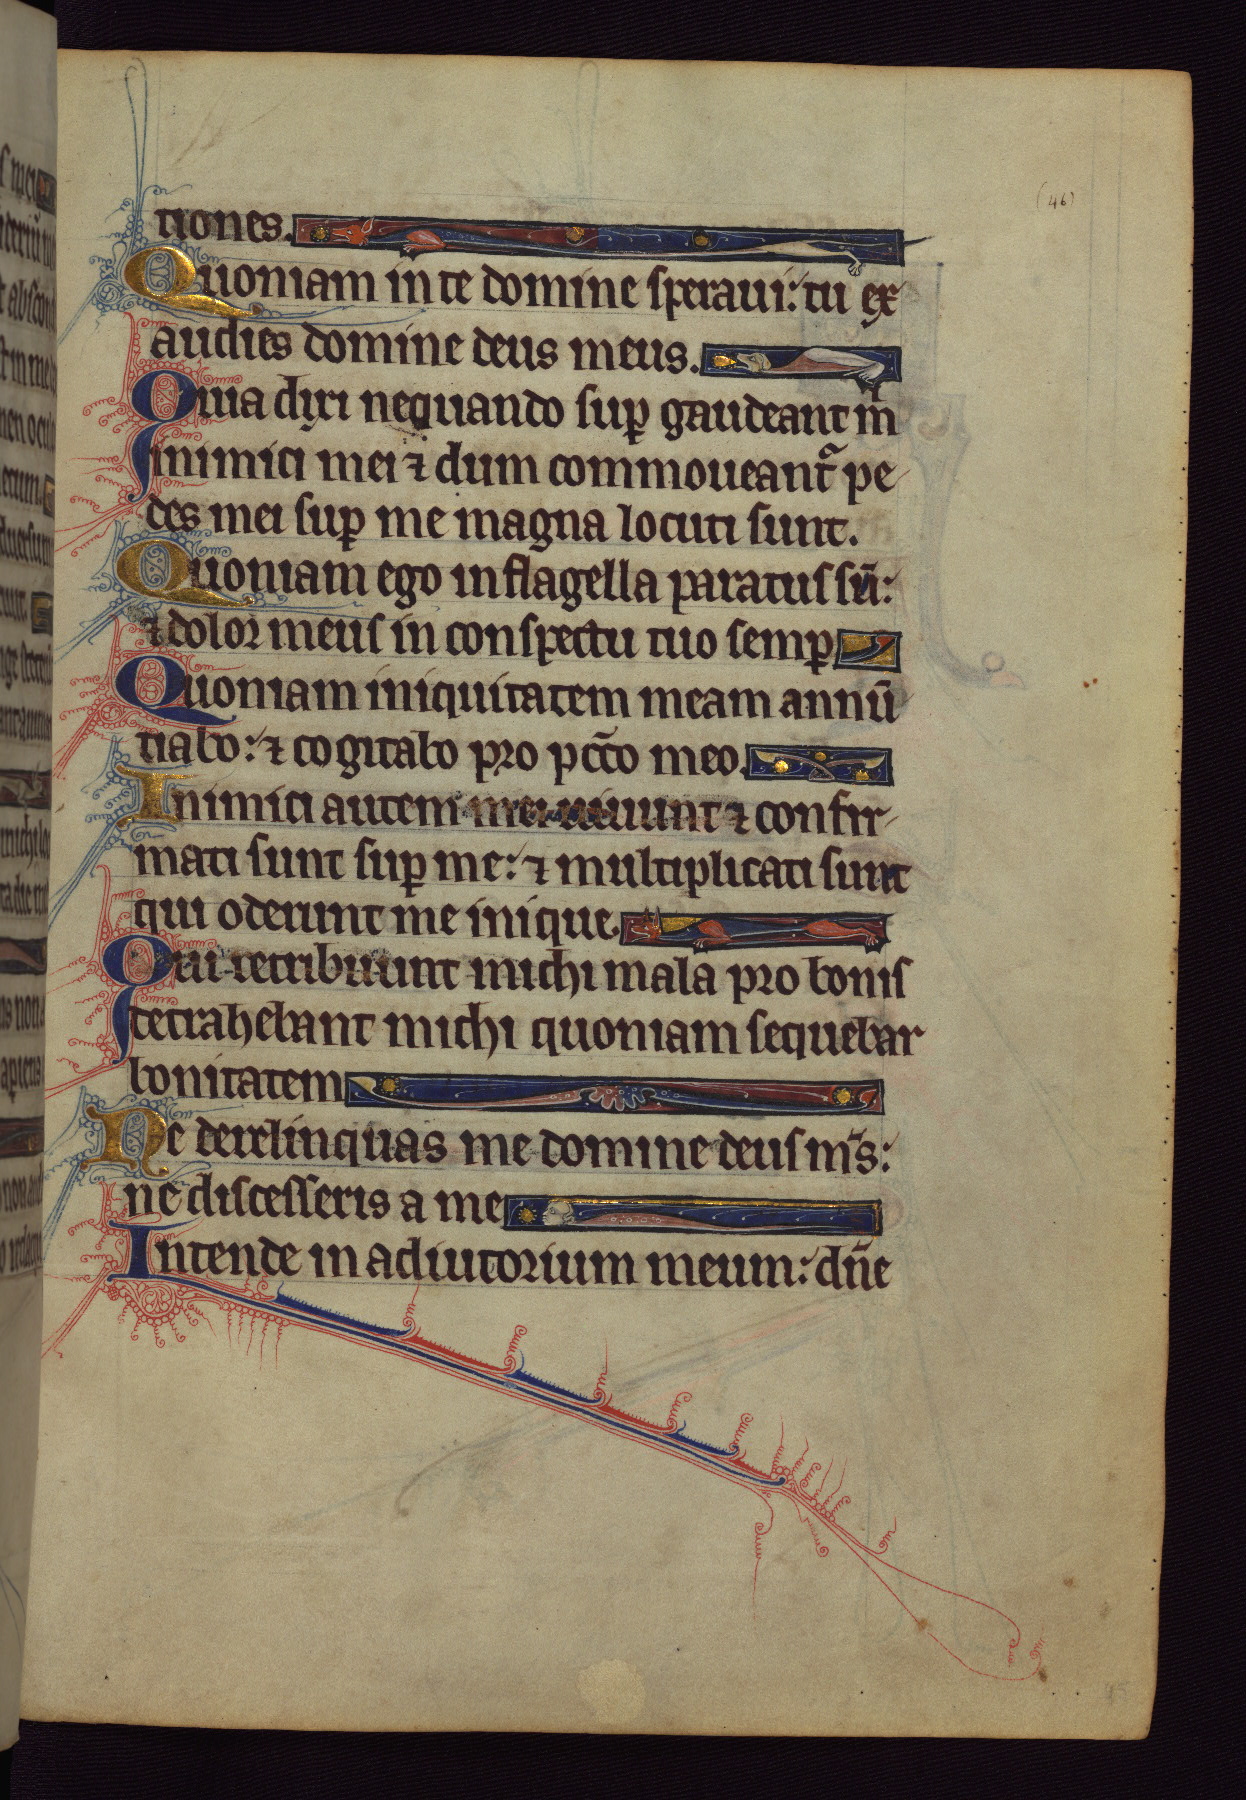 (46)
tiones.
Quoniam in te domine speraui: tu ex
audies domine deus meus.
Quia dixi nequando suꝑ gaudeant m̄
inimici mei ⁊ dum commoueant᷑ pe
des mei suꝑ me magna locuti sunt.
Quoniam ego in flagella paratus sū:
⁊ dolor meus in conspectu tuo semꝑ
Quoniam iniquitatem meam annū
tiabo: ⁊ cogitabo pro pc̄c̄o meo.
Inimici autem mei uiuunt ⁊ confir
mati sunt suꝑ me: ⁊ multiplicati sunt
qui oderunt me inique.
Qui retribuunt michi mala pro bonis
detrahebant michi quoniam sequebar
bonitatem
Ne derelinquas me domine deus m̄s:
ne discesseris a me
Intende in adiutorium meum: dn̄e